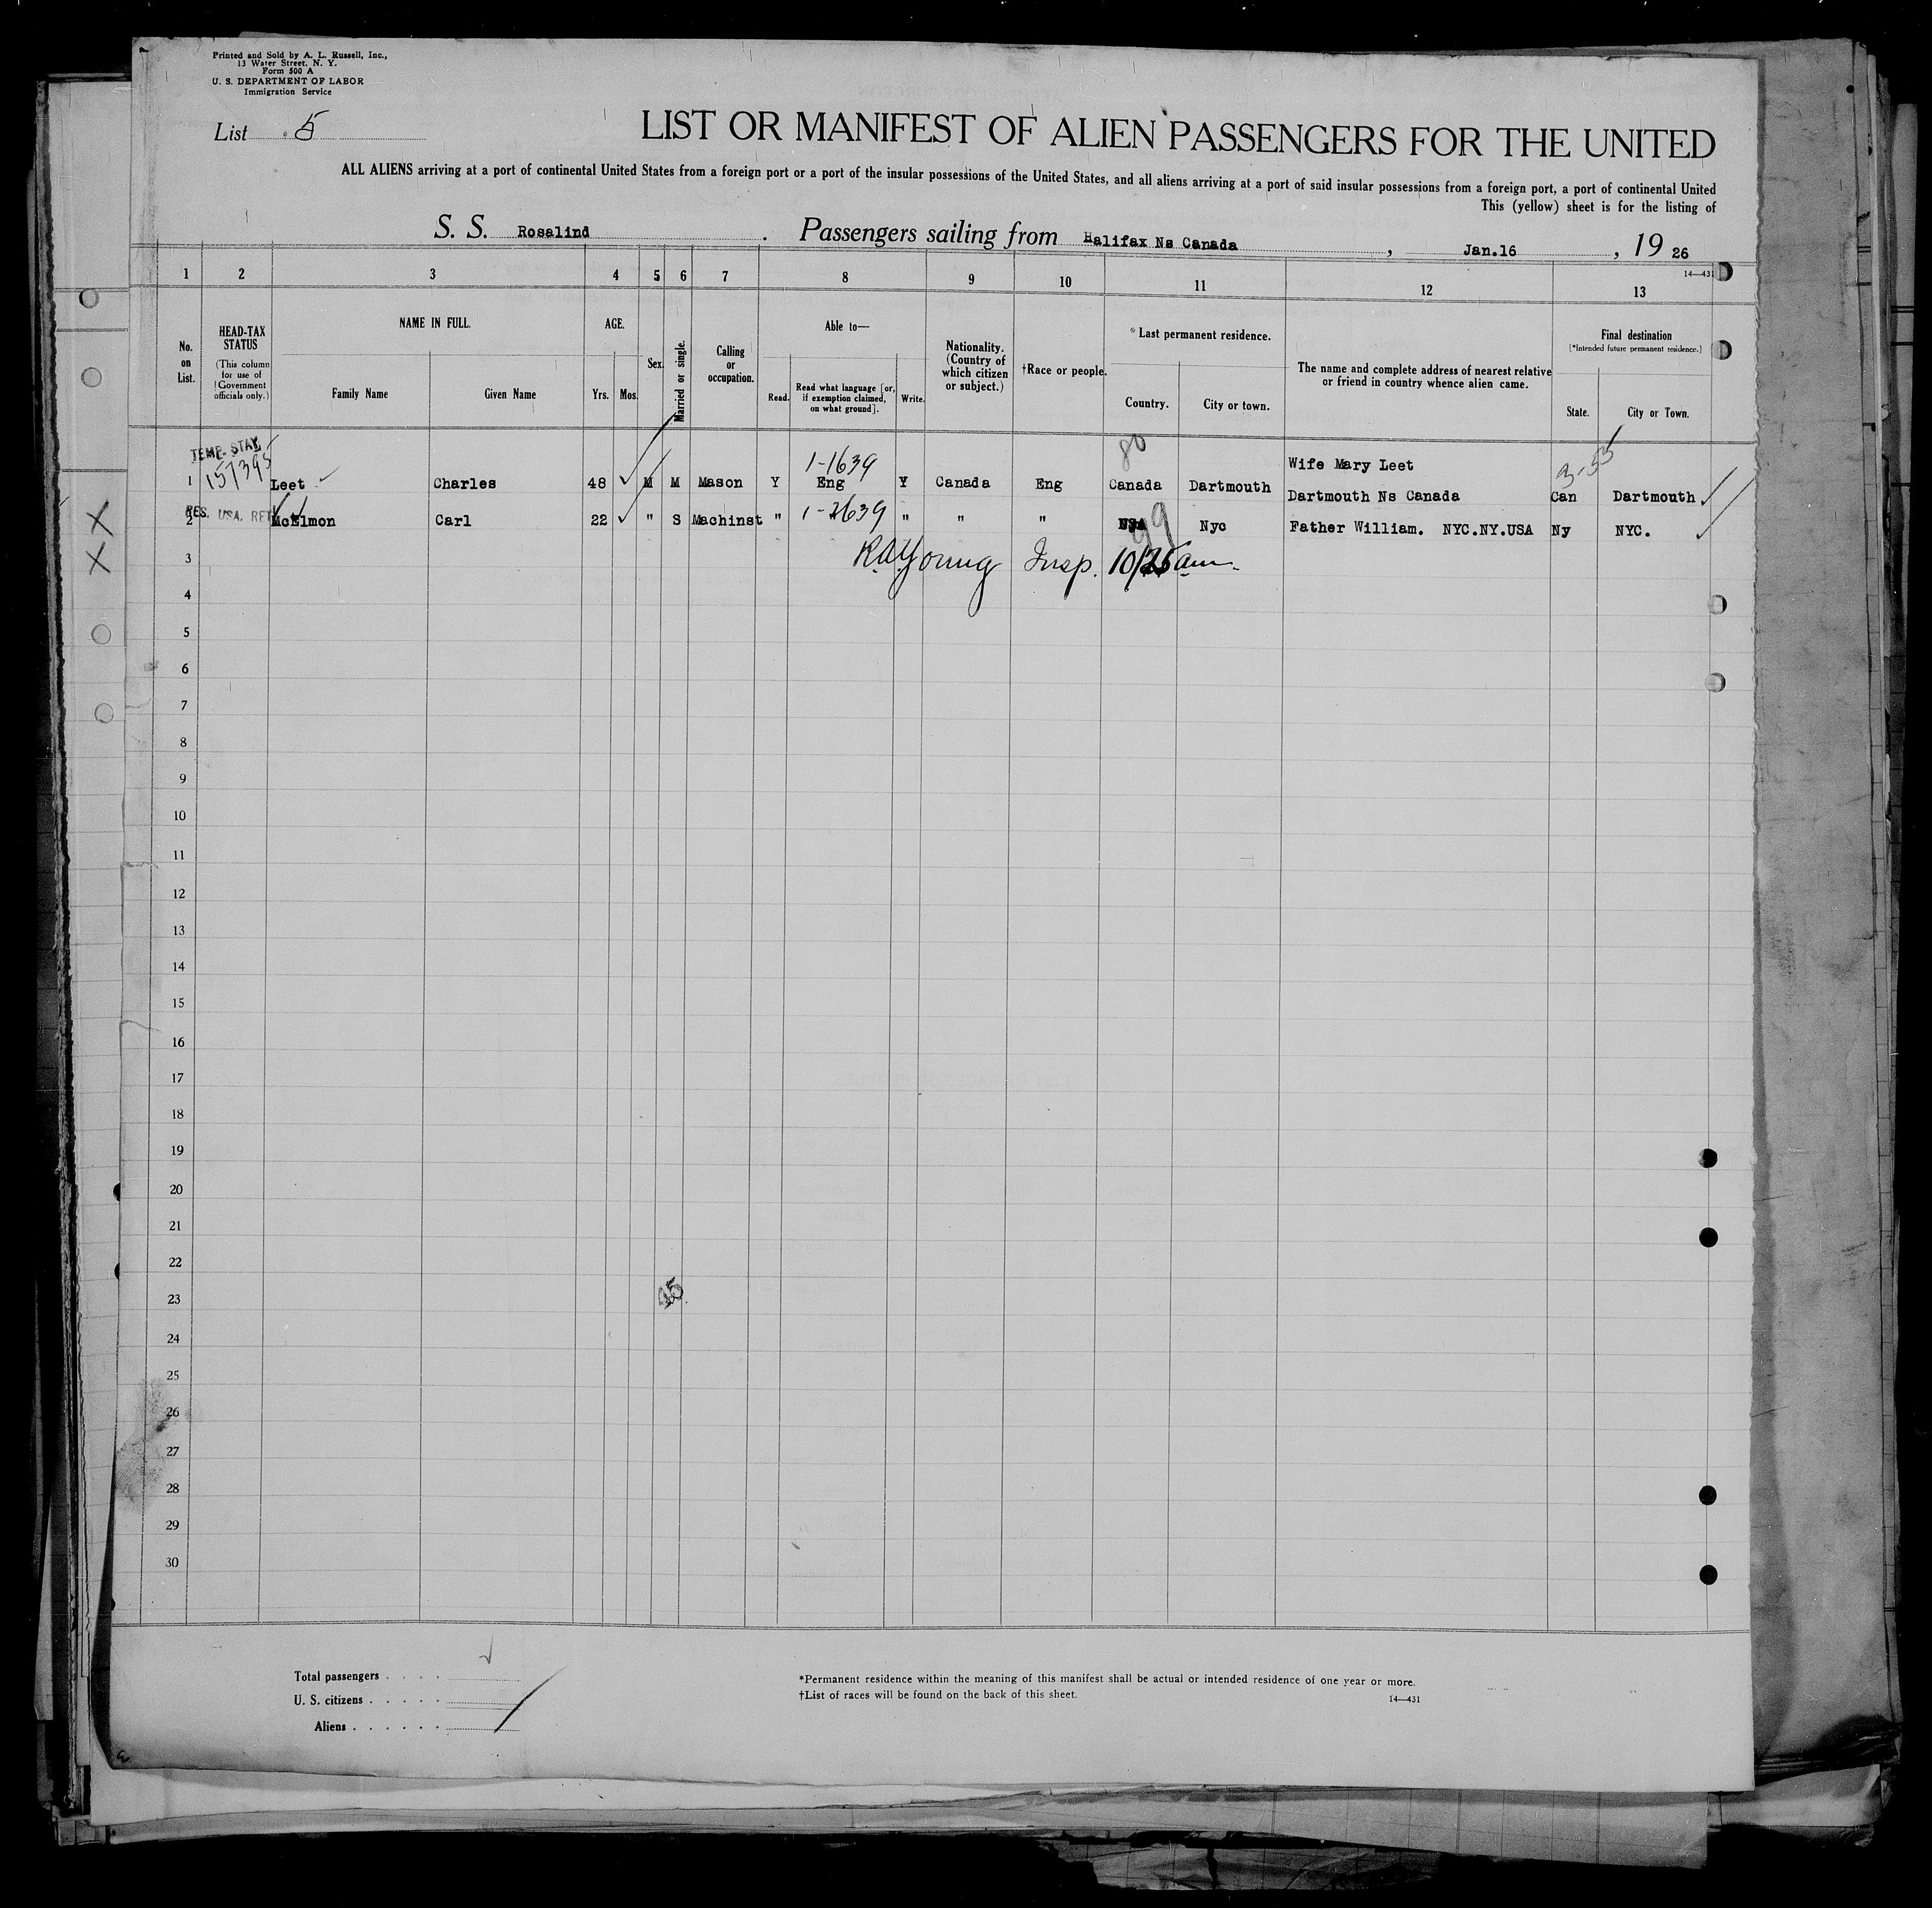 Printed and Sold by A. L. Russell, Inc.,
13 Water Street, N. Y.
Form 500 A
U. S. DEPARTMENT OF LABOR
Immigration Service
List 5
LIST OR MANIFEST OF ALIEN PASSENGERS FOR THE UNITED
ALL ALIENS arriving at a port of continental United States from a foreign port or a port of the insular possessions of the United States, and all aliens arriving at a port of said insular possessions from a foreign port, a port of continental United
This (yellow) sheet is for the listing of
S. S. Rosalind . Passengers sailing from Halifax Ns Canada , Jan.16 , 19 26
14—431
1 2 3 4 5 6 7 8 9 10 11 12 13
No. on List.
HEAD-TAX STATUS
(This column for use of Government officials only.)
NAME IN FULL.
Family Name
Given Name
AGE.
Yrs.
Mos.
Sex.
Married or single.
Calling or occupation.
Able to—
Read.
Read what language [or, if exemption claimed, on what ground].
Write.
Nationality. (Country of which citizen or subject.)
†Race or people.
*Last permanent residence.
Country.
City or town.
The name and complete address of nearest relative or friend in country whence alien came.
Final destination
[*Intended future permanent residence.]
State.
City or Town.
TEMP. STAY
157395
1-1639
80
3-55
Wife Mary Leet
1 Leet Charles 48 M M Mason Y Eng Y Canada Eng Canada Dartmouth Dartmouth Ns Canada Can Dartmouth
RES. USA. RET
2 McElmon Carl 22 " S Machinst " 1-2639 " " " USA Nyc Father William. NYC.NY.USA Ny NYC.
99
3 R.A. Young Insp. 10/25 am.
4
5
6
7
8
9
10
11
12
13
14
15
16
17
18
19
20
21
22
23
24
25
26
27
28
29
30
Total passengers . . . .
U. S. citizens . . . . .
Aliens . . . . . .
*Permanent residence within the meaning of this manifest shall be actual or intended residence of one year or more.
†List of races will be found on the back of this sheet.
14—431